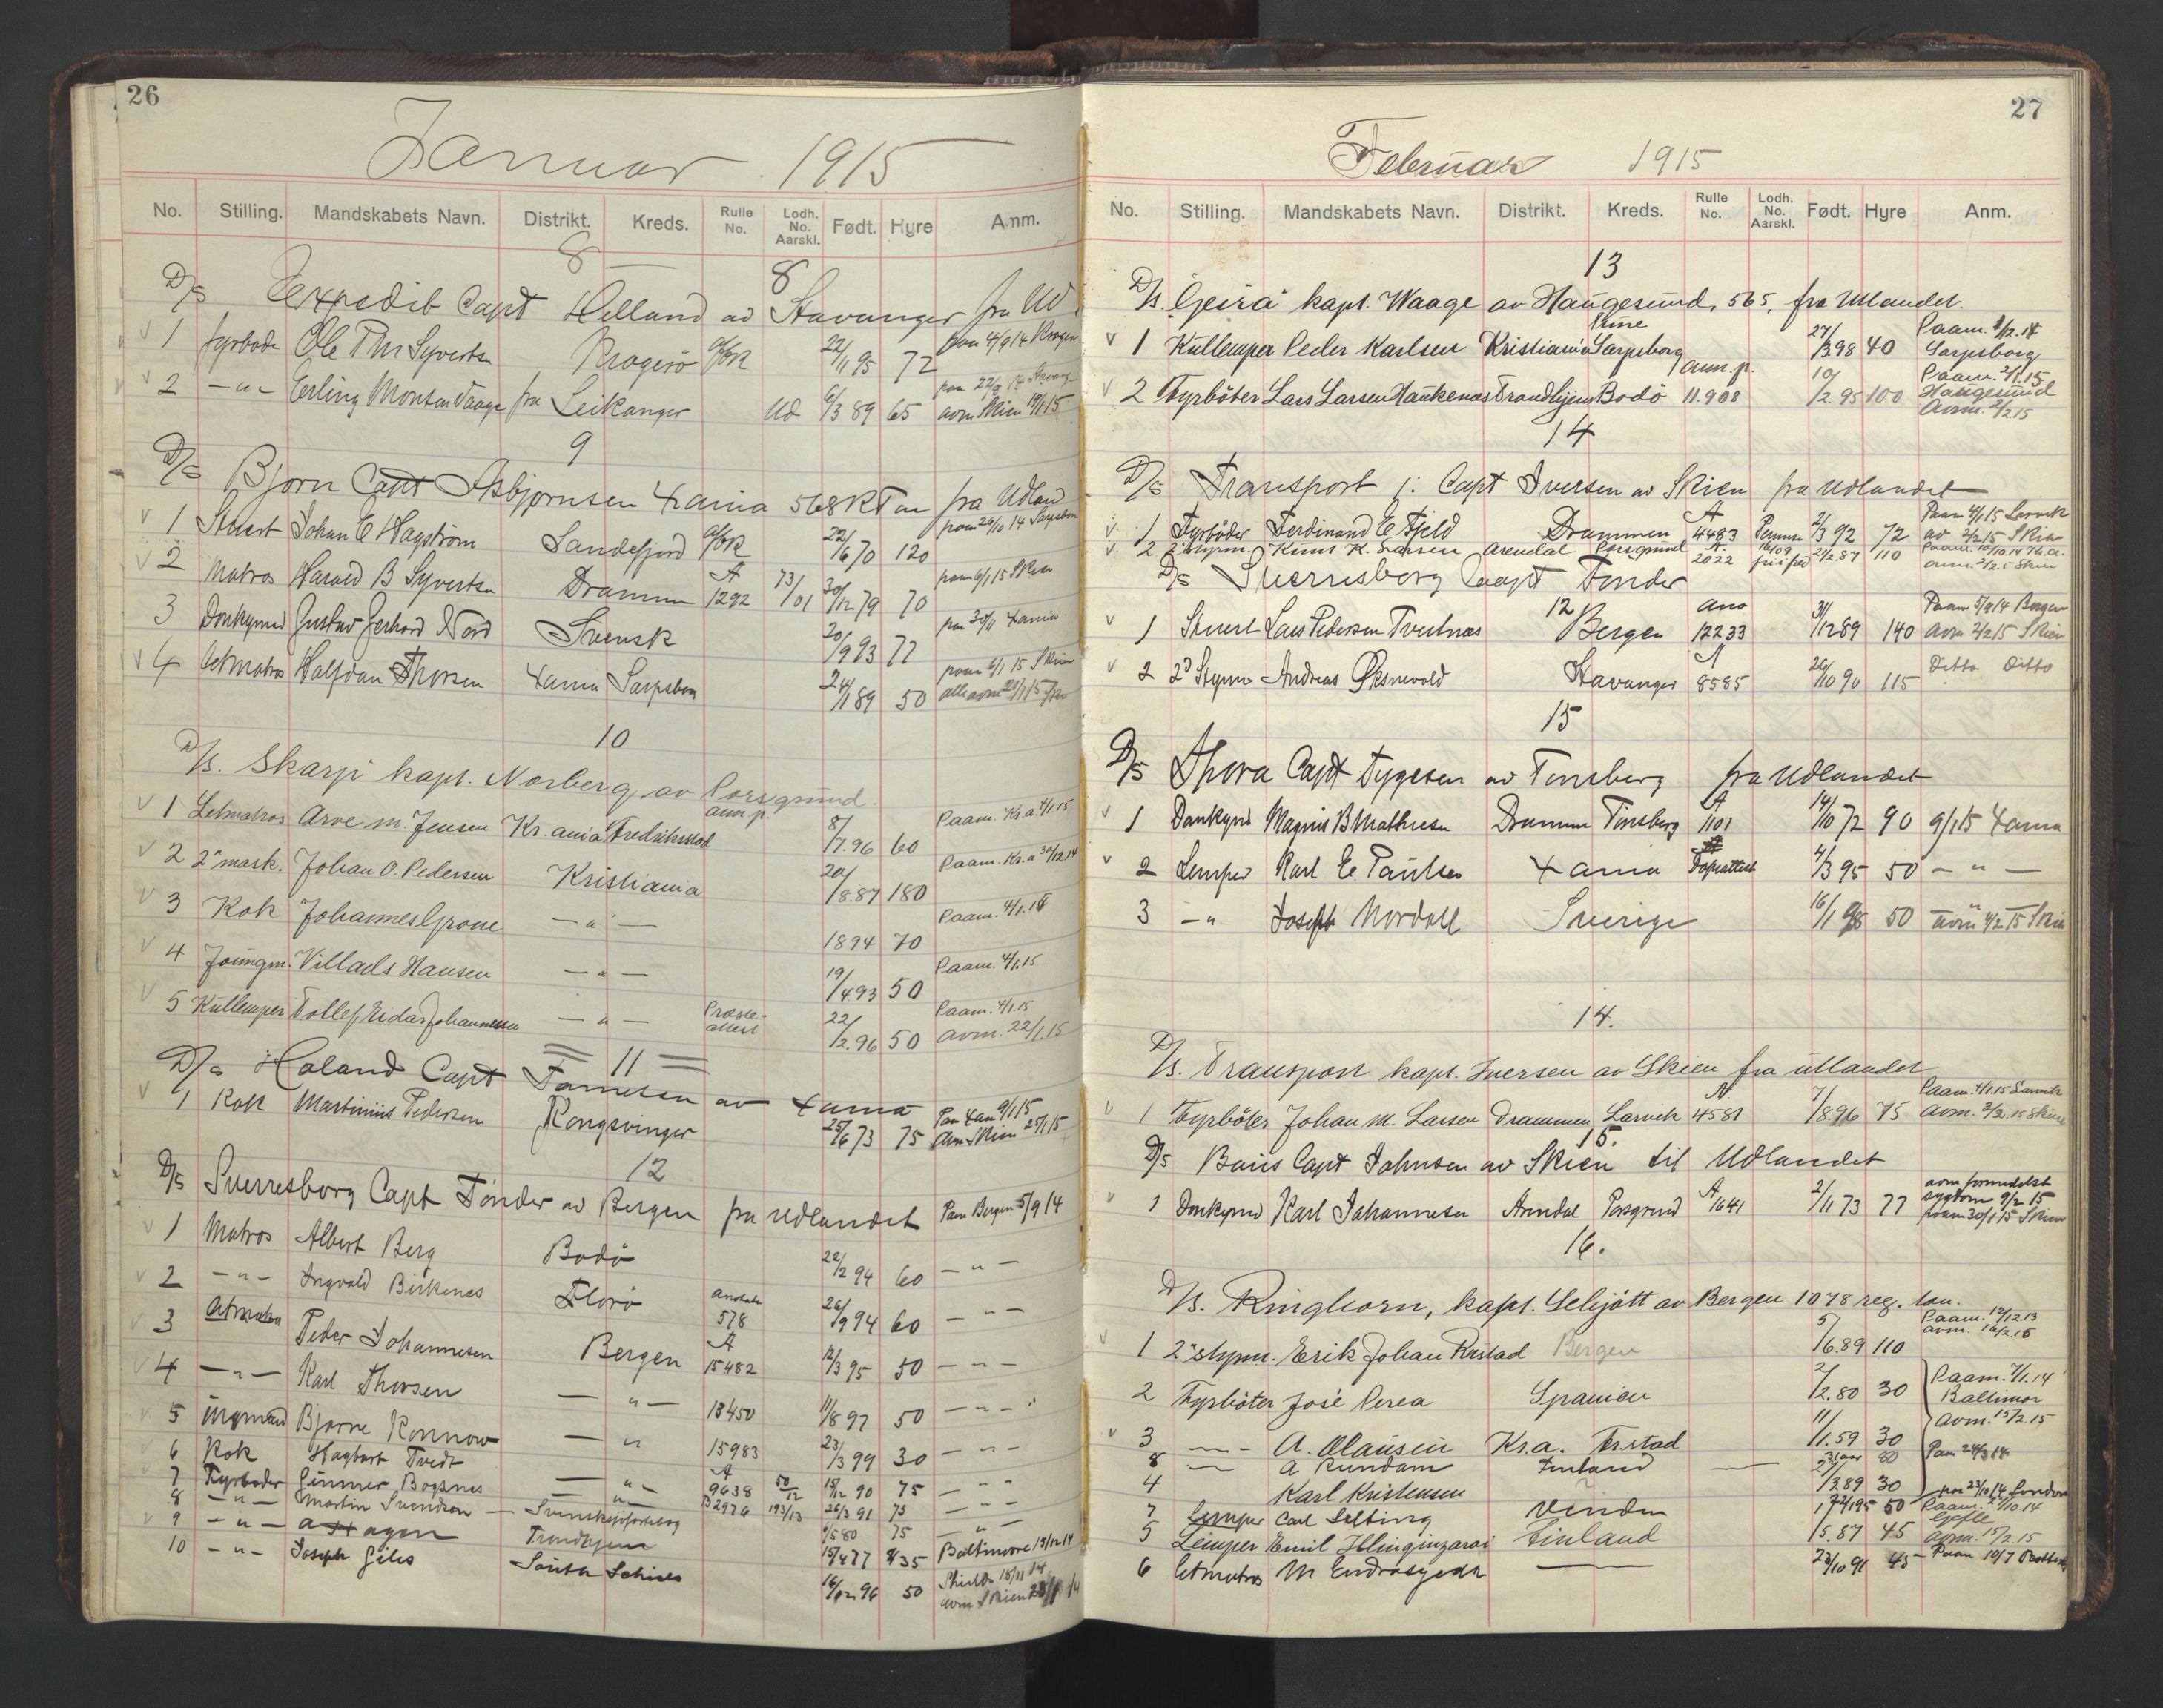 26
Januar 1915
No. Stilling. Mandskabets Navn. Distrikt. Kreds. Rulle No. Lodh. No. Aarskl. Født. Hyre Anm.
8 8
D/s Expedit Capt Helland av Stavanger fra Ud
1 fyrbøder Ole Thr Syvertsen Kragerø 22/11 95 72 paam 4/9 14
2 -"- Erling Monsen Vaage fra Leikanger Ud 6/3 89 65 avm Skien 19/1 15
9
D/s Bjørn Capt Asbjørnsen Xania 568 RT on fra Udland
1 Stuert Johan E Hagstrøm Sandefjord 22/6 70 120 paam 26/10 14
2 Matros Harald B Syvertsen Drammen A 1292 73/01 30/12 79 70 paam 6/1 15 Skien
3 Donkymd Gustav Gerhard Nord Svensk 20/9 93 77 paa 30/11 Xania
4 Letmatros Halfdan Thorsen Xania Sarpsborg 24/1 89 50 paam 6/1 15 Skien
10
D/s. Skarp kapt. Norberg av Porsgrund.
1 Letmatros Arve M. Jensen Kr.ania Fredriksstad ann p. 8/7.96 60 Paam. Kr.a. 4/1.15
2 2' mask. Johan O. Pedersen Kristiania 20/8.87 180 Paam. Kr.a 30/12.14
3 Kok Johannes Grone -"- 1894 70 Paam. 4/1.15
4 Joungm. Villads Hansen -"- 19/4.93 50 Paam. 4/1.15
5 Kullemper Tollef Eidar Johannessen -"- Præsteattest 22/2.96 50 Paam. 4/1.15 avm. 22/1.15
11
D/s Høland Capt av Xania
1 Kok Martinius Pedersen Kongsvinger 25/6 73 75 Paa Xan 9/1 15 Avm Skien 25/1 15
12
D/s Sverresborg Capt Tønder av Bergen fra Udlandet Paa Bergen 5/9 14
1 Matros Albert Berg Bodø 22/2 94 60 -"-
2 -"- Ingvald Birkenes Florø 578 26/9 94 60 -"-
3 Letmatros Peder Johannesen Bergen A 15482 12/3 95 50 -"-
4 -"- Karl Thorsen -"- 13450 11/8 97 50 -"-
5 Bjarne Konnow -"- 15983 23/3 99 30 -"-
6 Kok Hagbart Tvedt -"- A 9638 50/12 15/12 90 75 -"-
7 Fyrbøder Gunnar Bognes -"- B 2976 193/13 26/3 91 75 -"-
8 -"- Martin Svendsen Svensksjøfartsbog 5 80 75 -"-
9 -"- A Hagen Trondhjem 15/4 77 35 Baltimore 13/12 14
10 -"- Joseph Giles South Schiels 16/12 96 50 Shields 15/11 14
27
Februar 1915
No. Stilling. Mandskabets Navn. Distrikt. Kreds. Rulle No. Lodh. No. Aarskl. Født. Hyre Anm.
13
D/s "Geira" kapt. Waage av Haugesund, 565, fra Utlandet.
1 Kullemper Peder Karlsen Kristiania Sarpsborg ann. p. 27/3.98 40 Paam. 1/12.14 Sarpsborg
2 Fyrböter Lars Larsen Haukenæs Trondhjem Bodö 11.908 10/2.95 100 Paam. 2/1.15 Haugesund Avm. 2/2 15
14
D/s Transport j: Capt Iversen av Skien fra Udlandet
1 Fyrbøder Ferdinand E Fjeld Drammen A 4483 2/3 92 72 Paam 4/1 15 Larvik av 2/2 15 Skien
2 2 styrm. Knut K. Larsen Arendal Porsgrund A. 2022 21/2.87 110 Paam. 10/10.14 Kr.a. avm 2/2.5 Skien
D/s Sverresborg Capt Tønder
12
1 Stuert Lars Pedersen Tveitnæs Bergen ano 12233 31/12 89 140 Paam 5/9 14 Bergen avm 2/2 15 Skien
2 2d Styrm Andreas Øksnevold Stavanger A 8585 20/10 90 115 Ditto Ditto
15
D/s Thora Capt Tygesen av Tønsberg fra Udlandet
1 Donkymd Magnus B Mathiesen Drammen Tønsberg A 1101 14/10 72 90 9/1 15 Xania
2 Lemper Karl E Paulsen Xania Dåpsattest 4/3 95 50 -"-
3 -"- Joseph Nordall Sverige 16/1 98 50 -"- avm 4/2 15 Skien
14.
D/s. Transport kapt. Iversen av Skien fra utlandet
1 Fyrböter Johan M. Larsen Drammen Larvik A 4581 7/8.96 75 Paam. 4/1.15 Larvik avm. 2/2.15 Skien
15.
D/s Baus Capt Johnsen av Skien til Udlandet
1 Donkymd Karl Johannesen Arendal Porsgrund A 1641 2/11 73 77 avm formedelst sygdom 9/2 15 paam 30/1 15 Skien
16.
D/s. Ringhorn, kapt. Schjött av Bergen 1078 reg. ton.
1 2' styrm. Erik Johan Ristad Bergen 5/6.89 110 Paam. 12/12.13 avm. 16/2.15
2 Fyrböter José Perea Spanien 2/2.80 30 Paam. 7/1.14 Baltimor
3 -"- A. Olausen Kr.a. Fr.stad 11/1.59 30 avm. 15/2.15
8 -"- A Rundam Finland 31 aar 80 Paa 24/3 14
4 Karl Kristensen 27/3.89 30 paa 23/10 14 London
7 Lemper Carl Selting 12/1 95 50 Paam. 27/10.14 Gefle
5 Lemper Emil Finland 15.87 45 avm. 15/2.15
6 Letmatros M 23/10 91 45 - Paam 10/7